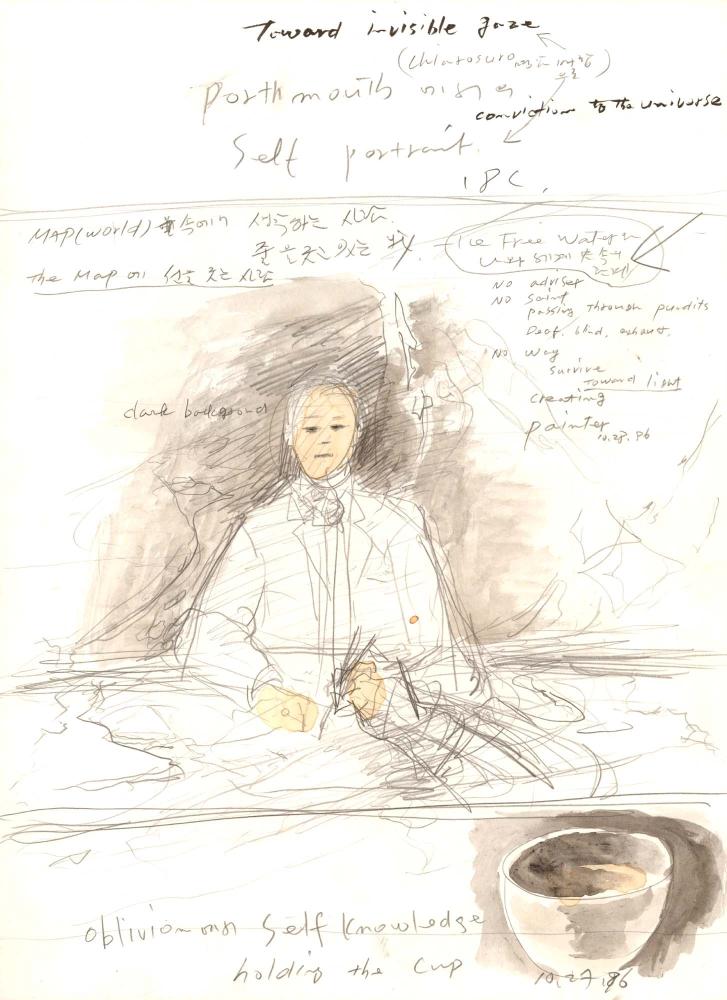 Toward invisible gaze
(chiarosuro
Porthmouth 에서의
conviction to the universe
Self portrait.
18C.
MAP(world) 속에서 선축하는 사람.
줄을 긋고 있는 
the Map에 선을 긋는 사람
The Free Water
NO adviser
NO Saint
passing through pundits
Deaf, blind, exhaust,
NO Way
survive
toward light
creating
painter
10.27.96
dark background
oblivion에서 Self Knowledge
holding the Cup
10.27.96